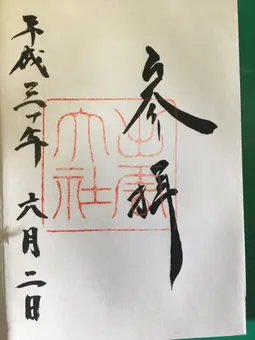 参拝
出雲
大社
平成三十年 六月二日